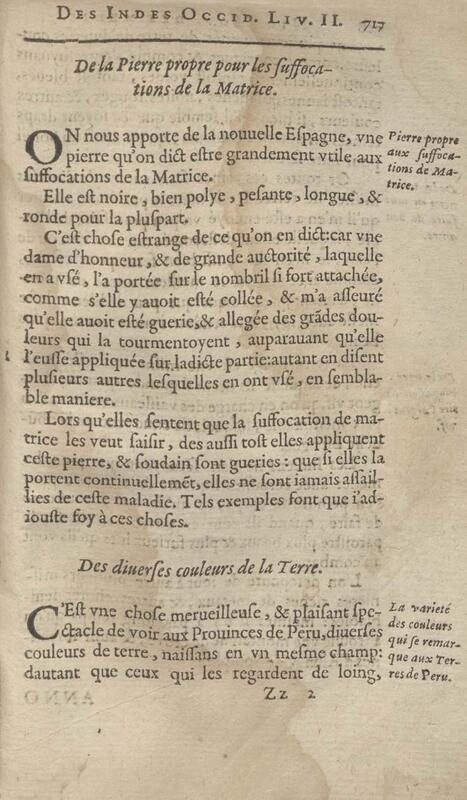 DES INDES OCCID. LIV. II. 717
De la Pierre propre pour les suffoca-
tions de la Matrice.
ON nous apporte de la nouuelle Espagne, vne
pierre qu'on dict estre grandement vtile aux
suffocations de la Matrice.
Pierre propre
aux suffoca-
tions de Ma-
trice.
Elle est noire, bien polye, pesante, longue, &
ronde pour la pluspart.
C'est chose estrange de ce qu'on en dict: car vne
dame d'honneur, & de grande auctorité, laquelle
en a vsé, l'a portée sur le nombril si fort attachée,
comme s'elle y auoit esté collée, & m'a asseuré
qu'elle auoit esté guerie, & allegée des grãdes dou-
leurs qui la tourmentoyent, auparauant qu'elle
l'eusse appliquée sur ladicte partie: autant en disent
plusieurs autres lesquelles en ont vsé, en sembla-
ble maniere.
Lors qu'elles sentent que la suffocation de ma-
trice les veut saisir, des aussi tost elles appliquent
ceste pierre, & soudain sont gueries: que si elles la
portent continuellemẽt, elles ne sont iamais assail-
lies de ceste maladie. Tels exemples font que i'ad-
iouste foy à ces choses.
Des diuerses couleurs de la Terre.
C'Est vne chose merueilleuse, & plaisant spe-
ctacle de voir aux Prouinces de Peru, diuerses
couleurs de terre, naissans en vn mesme champ:
dautant que ceux qui les regardent de loing,
La varieté
des couleurs
qui se remar-
que aux Ter-
res de Peru.
Zz 2